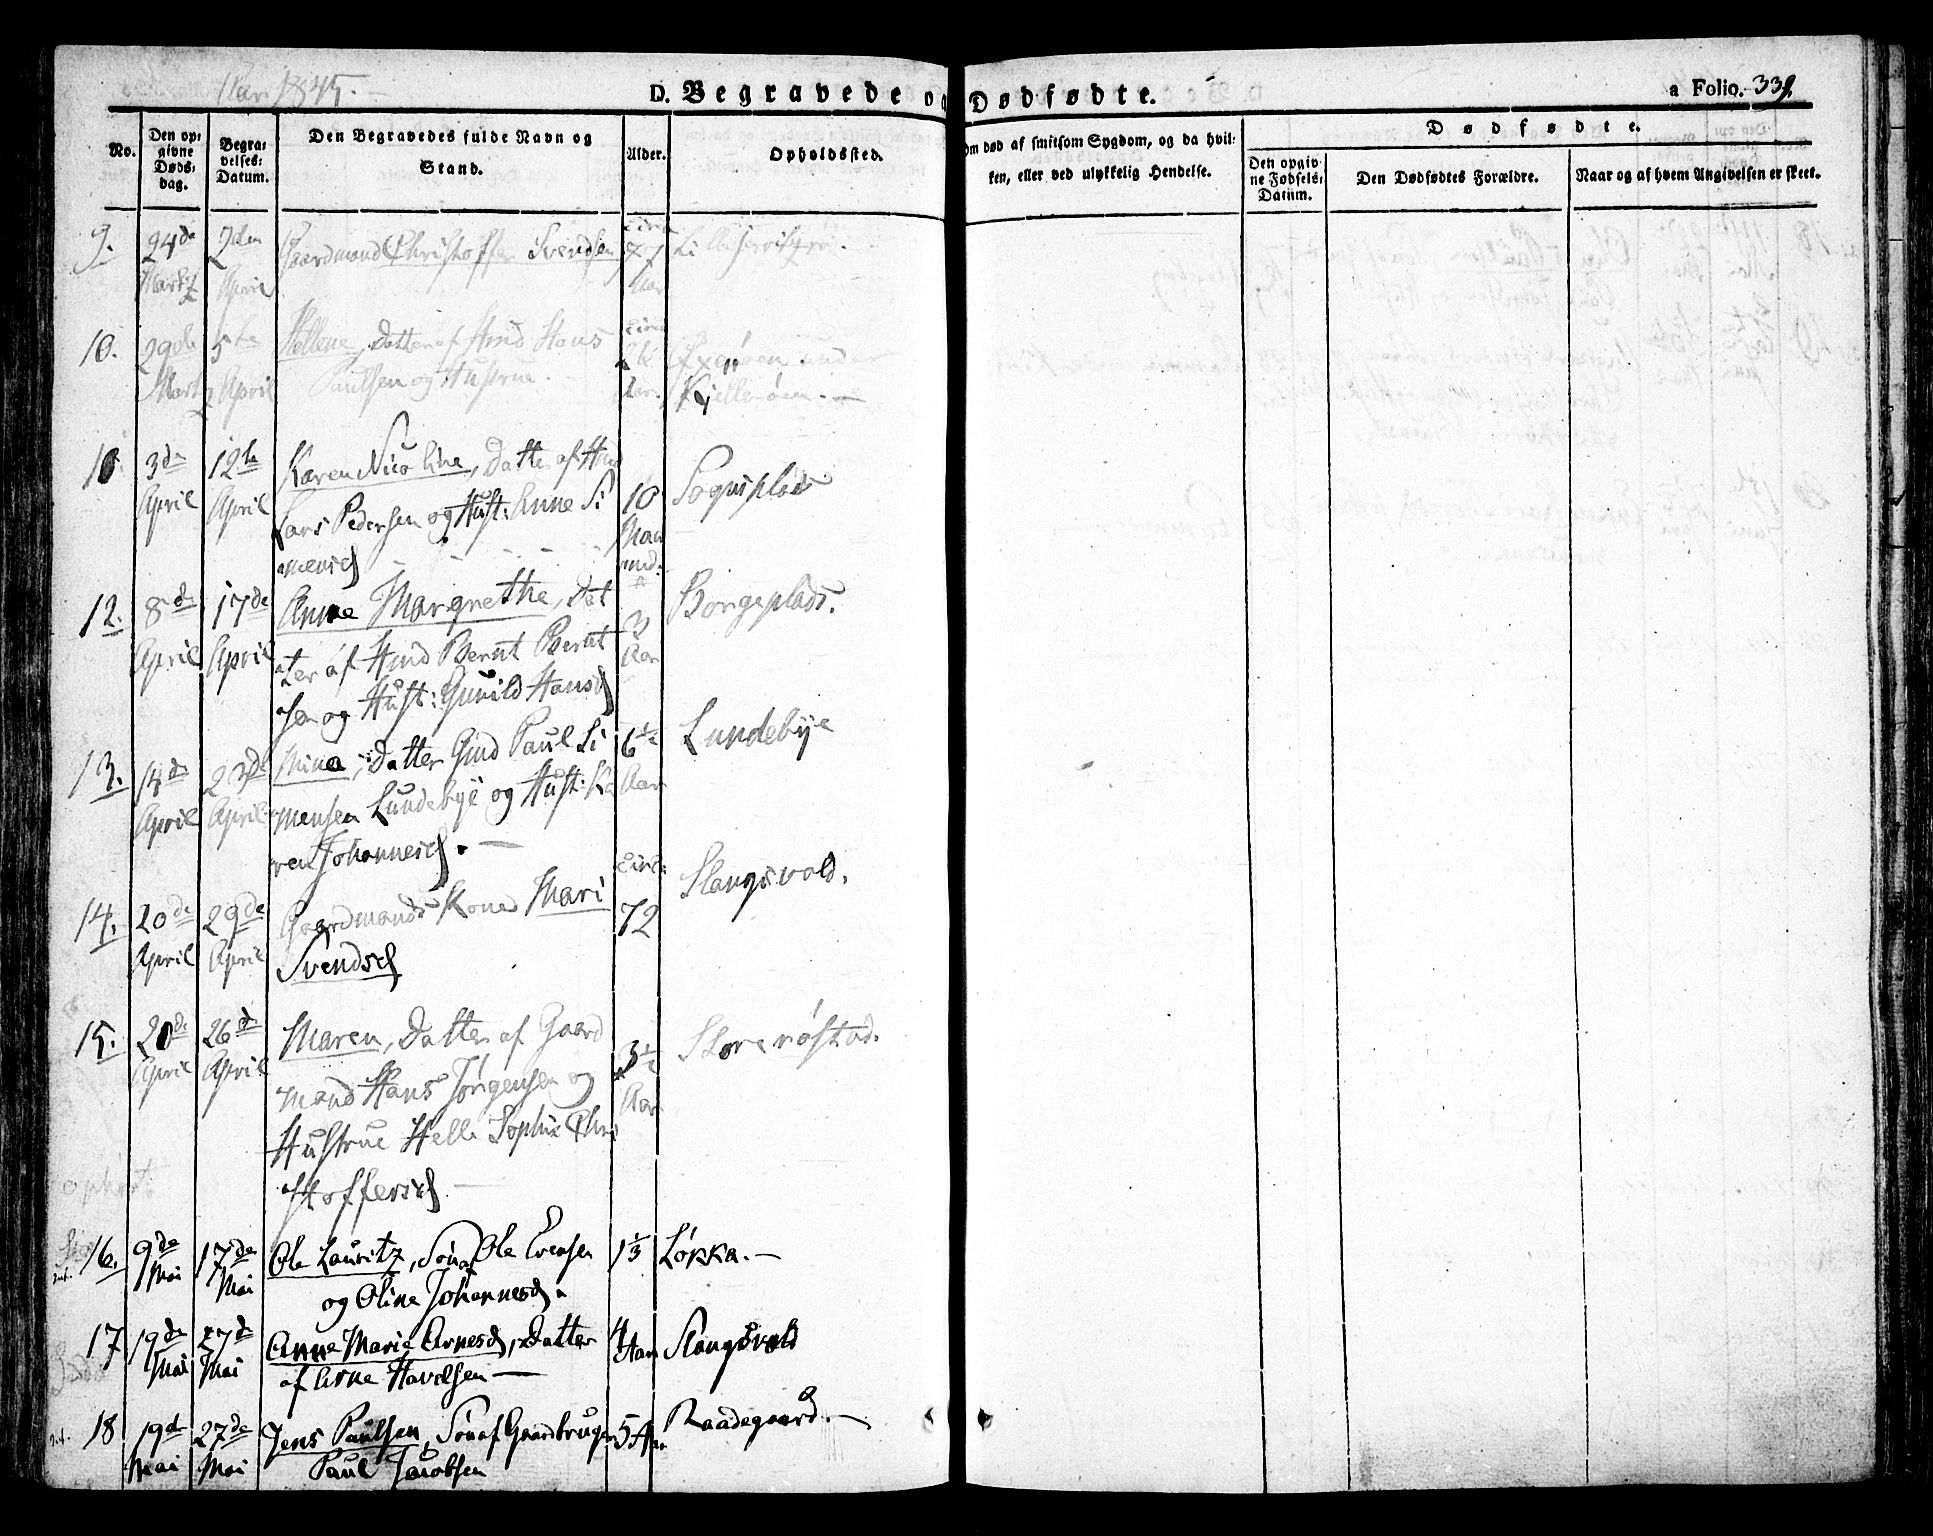 Aar 1845.
D. Begravede og Dødfødte.
a Folio. 339.
No.
Den opgivne Døds-dag.
Begravelses-Datum.
Den Begravedes fulde Navn og Stand.
Alder.
Opholdssted.
Om død af smitsom Sygdom, og da hvilken, eller ved ulykkelig Hendelse.
Dødfødte.
Den opgivne Fødsels-Datum.
Den Dødfødtes Forældre.
Naar og af hvem Angivelsen er skeet.
9. 24de 2den Gaardmand Christoffer Svendsen circa 77
Martz April Aar
10. 29de 5te Hellene, Datter af Hmd Hans circa
Martz April Paulsen og Hustrue. Aar. Kjellerøen.
3de 12te Karen Nicoline, Datter af Hmd
April April Lars Pedersen og Hust: Anne Si 10 Sognsplads
mensd Maaned.
12. 8de 17de Anne Margrethe, Dat 3 Borgeplads.
April April ter af Hmd Bernt Bernt Aar
sen og Hust: Gunild Hansd
13. 14de 23de Mina, Datter Gmd Paul Si 6½ Lundebye
April April mensen Lundebye og Hust: Ka Aar
ren Johannesd.
14. 20de 29de Gaardmands Kone Mari circa 72 Slangsvold.
April April Svendsd
15. 20de 26de Maren, Datter af Gaard 3½ Store røstad.
April April mand Hans Jørgensen og Aar
Hustrue Helle Sophie Chri
stoffersd
16. 9de 17de Ole Lauritz, Søn af Ole Evensen 1⅓ Løkka.
Mai Mai og Oline Johannesd.
17 19de 27de Anne Marie Arnesd, Datter 4 Aar Slangsvold
Mai Mai af Arne Havelsen
18 19de 27de Jens Paulsen, Søn af Gaardbruger 5 Aar Raadegaard.
Mai Mai Paul Jacobsen